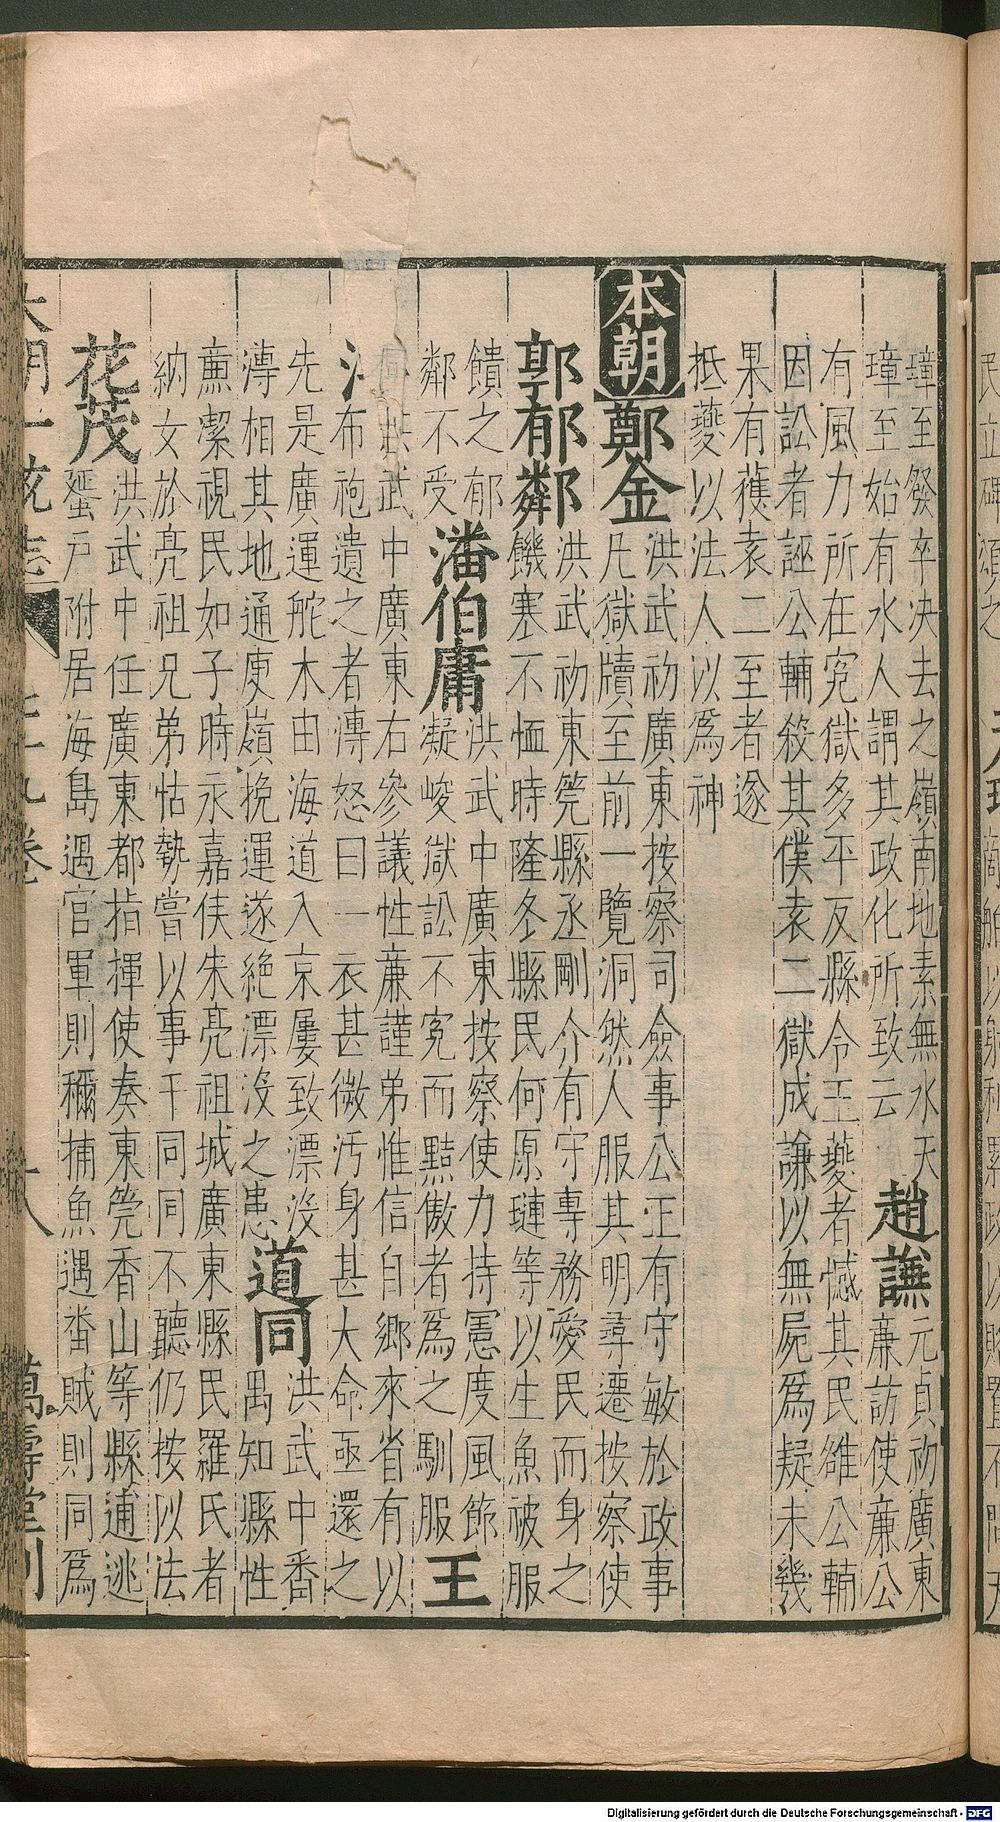 璋至發卒决去之嶺南地素無水天趙讌元貞初廣東
璋至始有水人謂其政化所致云廉訪使廉公
有風力所在寃獄多平反縣令王夔者憾其民雒公輔
因訟者誣公輔殺其僕袁二獄成謙以無屍爲疑未幾
果有獲袁二至者遂
抵夔以法人以爲神
本朝鄭金洪武初廣東按察司僉事公正有守敏於政事
凡獄牘至前一覽洞然人服其明尋遷按察使
郭郁鄰洪武初東筦縣丞剛介有守專務愛民而身之
郭有鄰饑寒不恤時隆冬縣民何原璉等以生魚被服
饋之郁潘伯庸洪武中廣東按察使力持憲度風節
鄰不受凝峻嶽訟不寃而黠傲者爲之馴服王
洪武中廣東右參議性廉謹弟惟信自鄉來省有以
布袍遺之者溥怒曰一衣甚微汚身甚大命亟還之
先是廣運舵木由海道入京屢致漂没
溥相其地通庾嶺挽運遂絶漂没之患道同洪武中番
禺知縣性
廉潔視民如子時永嘉侯朱亮祖城廣東縣民羅氏者
納女於亮祖兄弟怙勢嘗以事干同同不聽仍按以法
花茂洪武中任廣東都指揮使奏東筦香山等縣逋逃
蜑戶附居海島遇官軍則稱捕魚遇畨賊則同爲
大明一統志 七十九卷 十八 萬壽堂刊
Digitalisierung gefördert durch die Deutsche Forschungsgemeinschaft - DFG